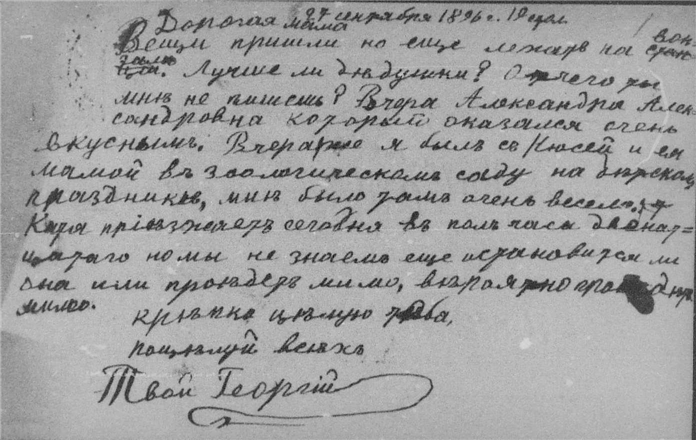 Дорогая мама 27 сентября 1896 г.
Вещи пришли но еще лежатъ на вок-
зали. Лучше ли дѣдушки? Отчего ты
мнѣ не пишешь? Вчера Александра Алек-
сандровна который оказался очень
вкуснымъ. Вчера же я былъ съ Кюсей и ея
мамой въ зоологическомъ саду на дѣтскомъ
праздникѣ, мнѣ было тамъ очень весело.
Катя пріѣзжаетъ сегодня въ полъ часа двѣнат=
цатаго но мы не знаемъ еще остановится ли
она или проѣдетъ мимо, вѣроятно проѣдетъ
мимо.
крѣпко цѣлую тебя,
поцѣлуй всѣхъ
Твой Георгій